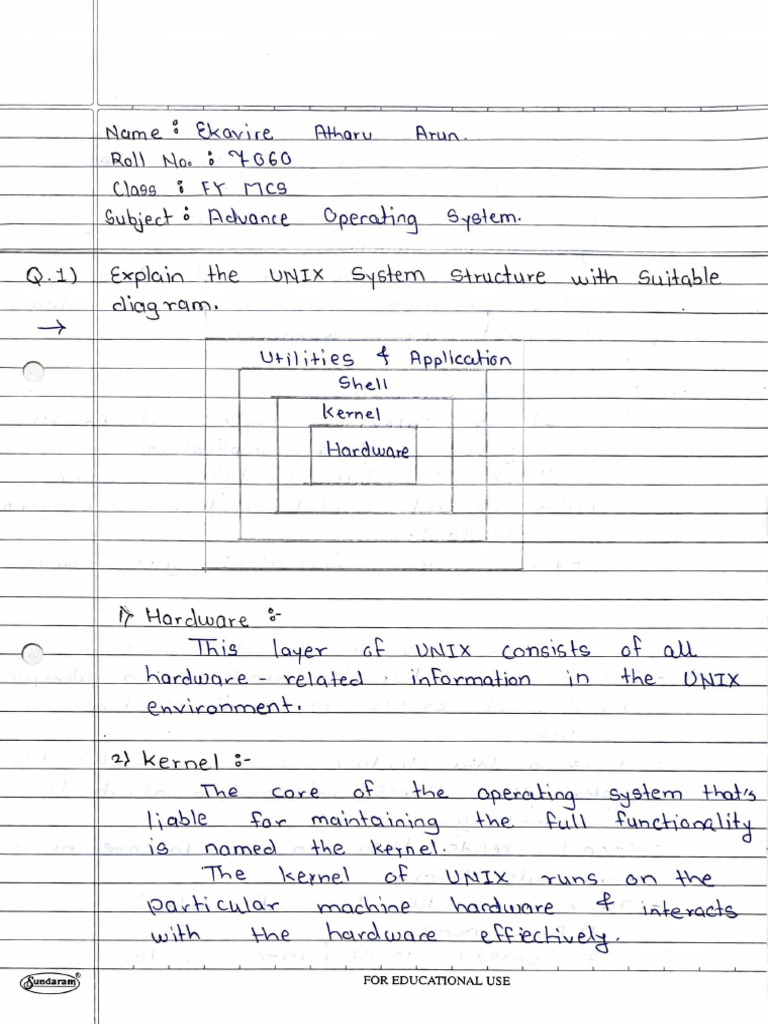 Name : Ekavire Atharv Arun.
Roll No. : 7060
Class : FY MCS
Subject : Advance Operating System.
Q.1) Explain the UNIX System Structure with Suitable
diagram.
→
Utilities & Application
Shell
Kernel
Hardware
1) Hardware :-
This layer of UNIX consists of all
hardware-related information in the UNIX
environment.
2) Kernel :-
The core of the operating system that's
liable for maintaining the full functionality
is named the kernel.
The kernel of UNIX runs on the
particular machine hardware & interacts
with the hardware effectively.
Sundaram®
FOR EDUCATIONAL USE